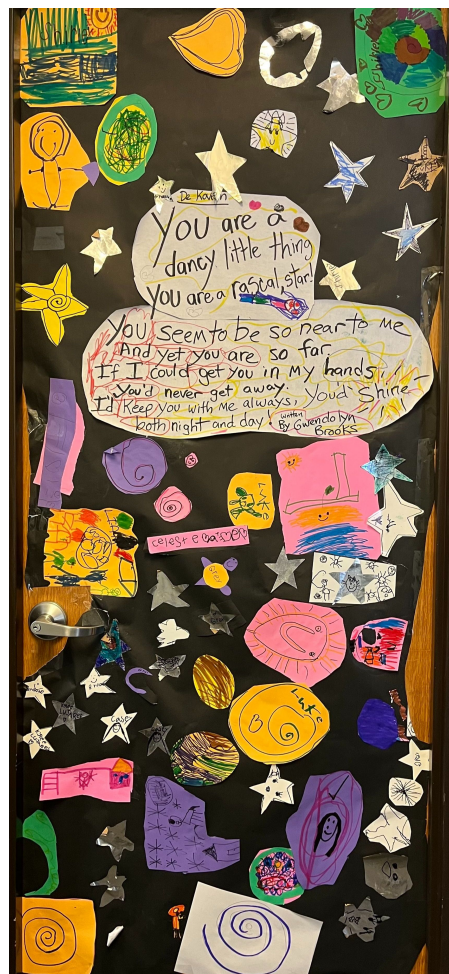 Shine
De Koven
You are a
dancy little thing
You are a rascal, star!
You seem to be so near to me
And yet you are so far
If I could get you in my hands
You'd never get away.
I'd Keep you with me always, You'd Shine
both night and day!
Written
By Gwendolyn
Brooks
Luke
celeste
Luke